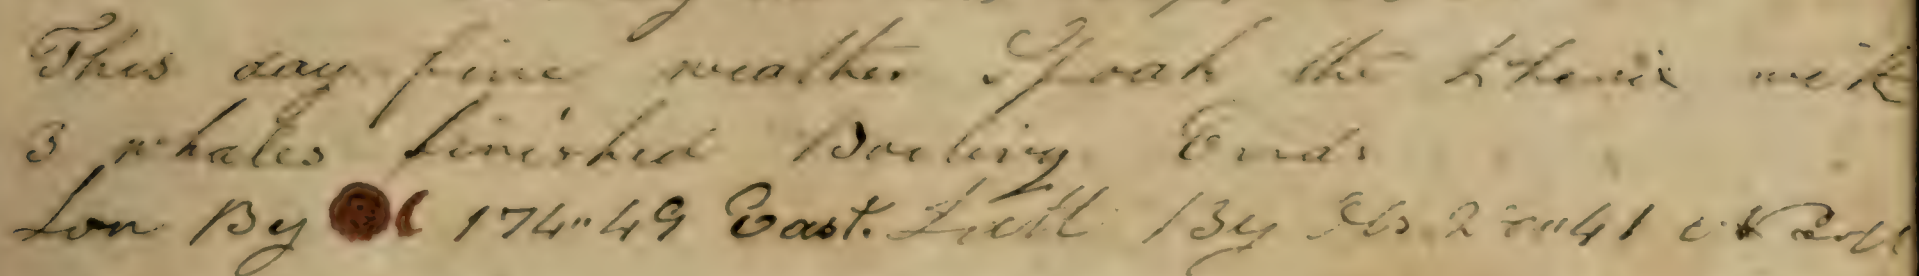 This day fine weather Spoak the Phenix with
3 whales finished Boiling Ends
Lon By 174"49 East. Latt By Ob 28"41 North